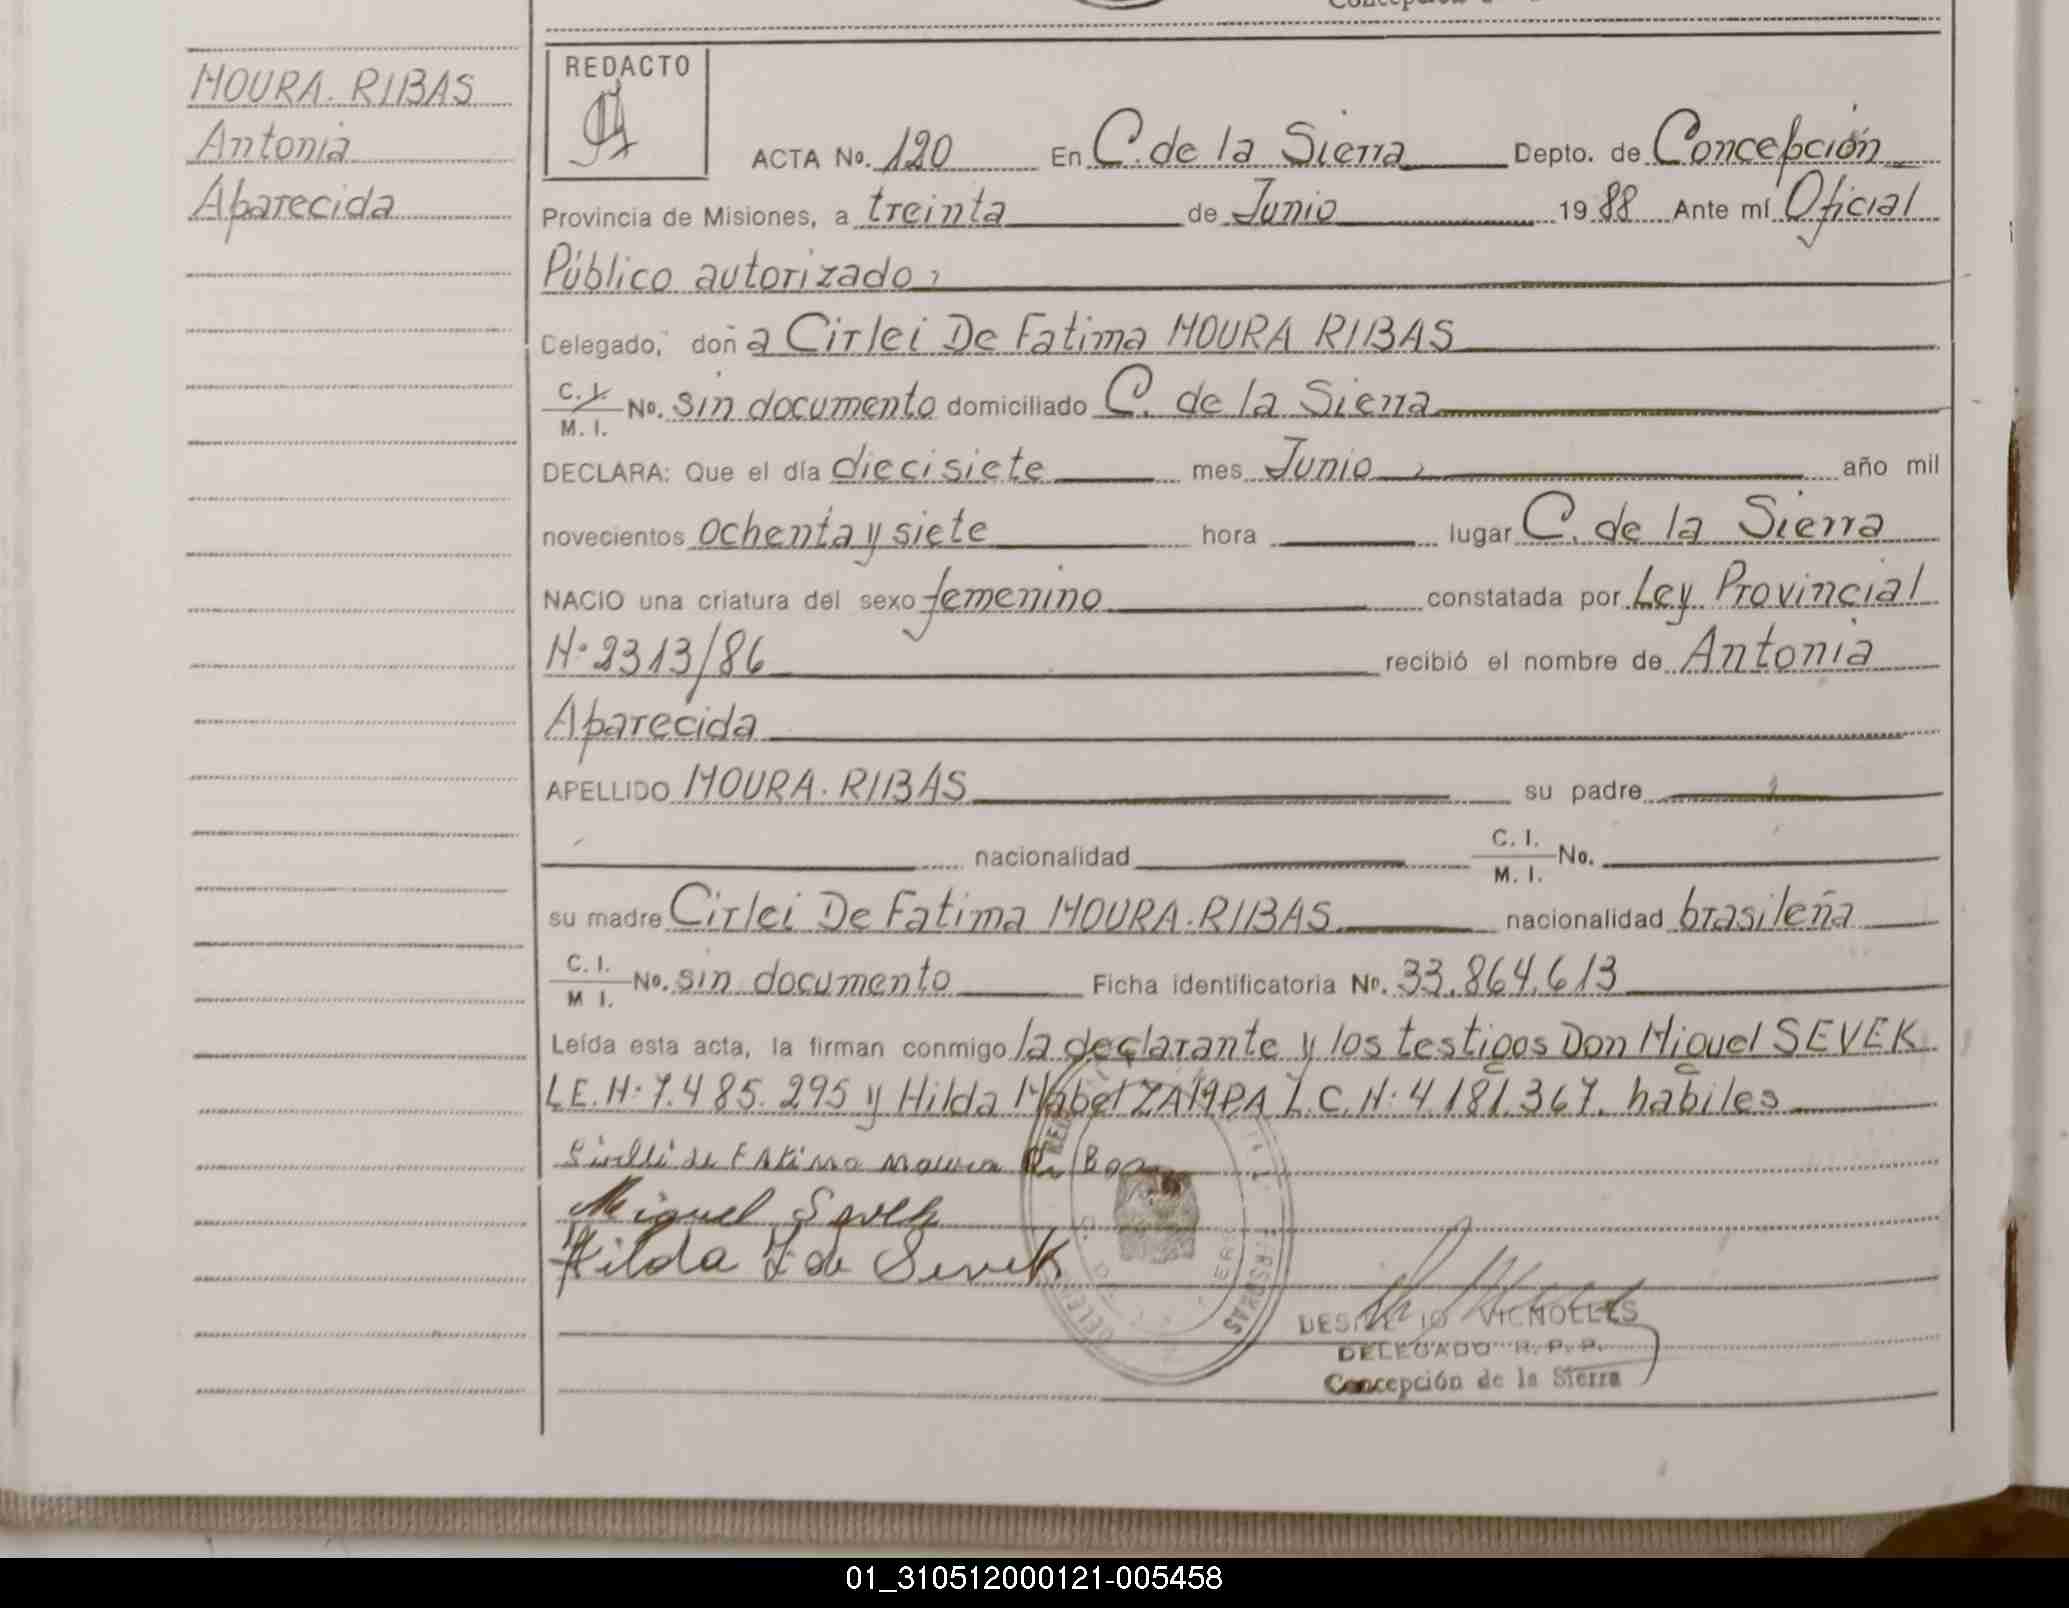 MOURA. RIBAS
Antonia
Aparecida
REDACTO
ACTA No. 120 En C. de la Sierra Depto. de Concepción
Provincia de Misiones, a treinta de Junio 1988 Ante mí Oficial
Público autorizado,
Delegado, doña Cirlei De Fatima MOURA RIBAS
C. I. / M. I. No. sin documento domiciliado C. de la Sierra
DECLARA: Que el día diecisiete mes Junio, año mil
novecientos ochenta y siete hora lugar C. de la Sierra
NACIO una criatura del sexo femenino constatada por Ley Provincial
N° 2313/86 recibió el nombre de Antonia
Aparecida
APELLIDO MOURA. RIBAS su padre
nacionalidad C. I. / M. I. No.
su madre Cirlei De Fatima MOURA. RIBAS nacionalidad brasileña
C. I. / M I. No. sin documento Ficha identificatoria No. 33.864.613
Leída esta acta, la firman conmigo la declarante y los testigos Don Miguel SEVEK
L.E. N° 7.485.295 y Hilda Mabel ZAMPA L.C. N° 4.181.367. habiles
de Fatima moura
Miguel Sevek
Hilda Z de Sevek
VIGNOLLES
DELEGADO R. P. P.
Concepción de la Sierra
01_310512000121-005458